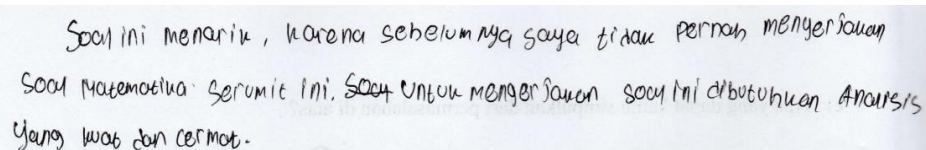 Soal ini menarik, karena sebelumnya saya tidak pernah mengerjakan
Soal Matematika serumit ini. Soal Untuk mengerjakan soal ini dibutuhkan Analisis
Yang kuat dan cermat.